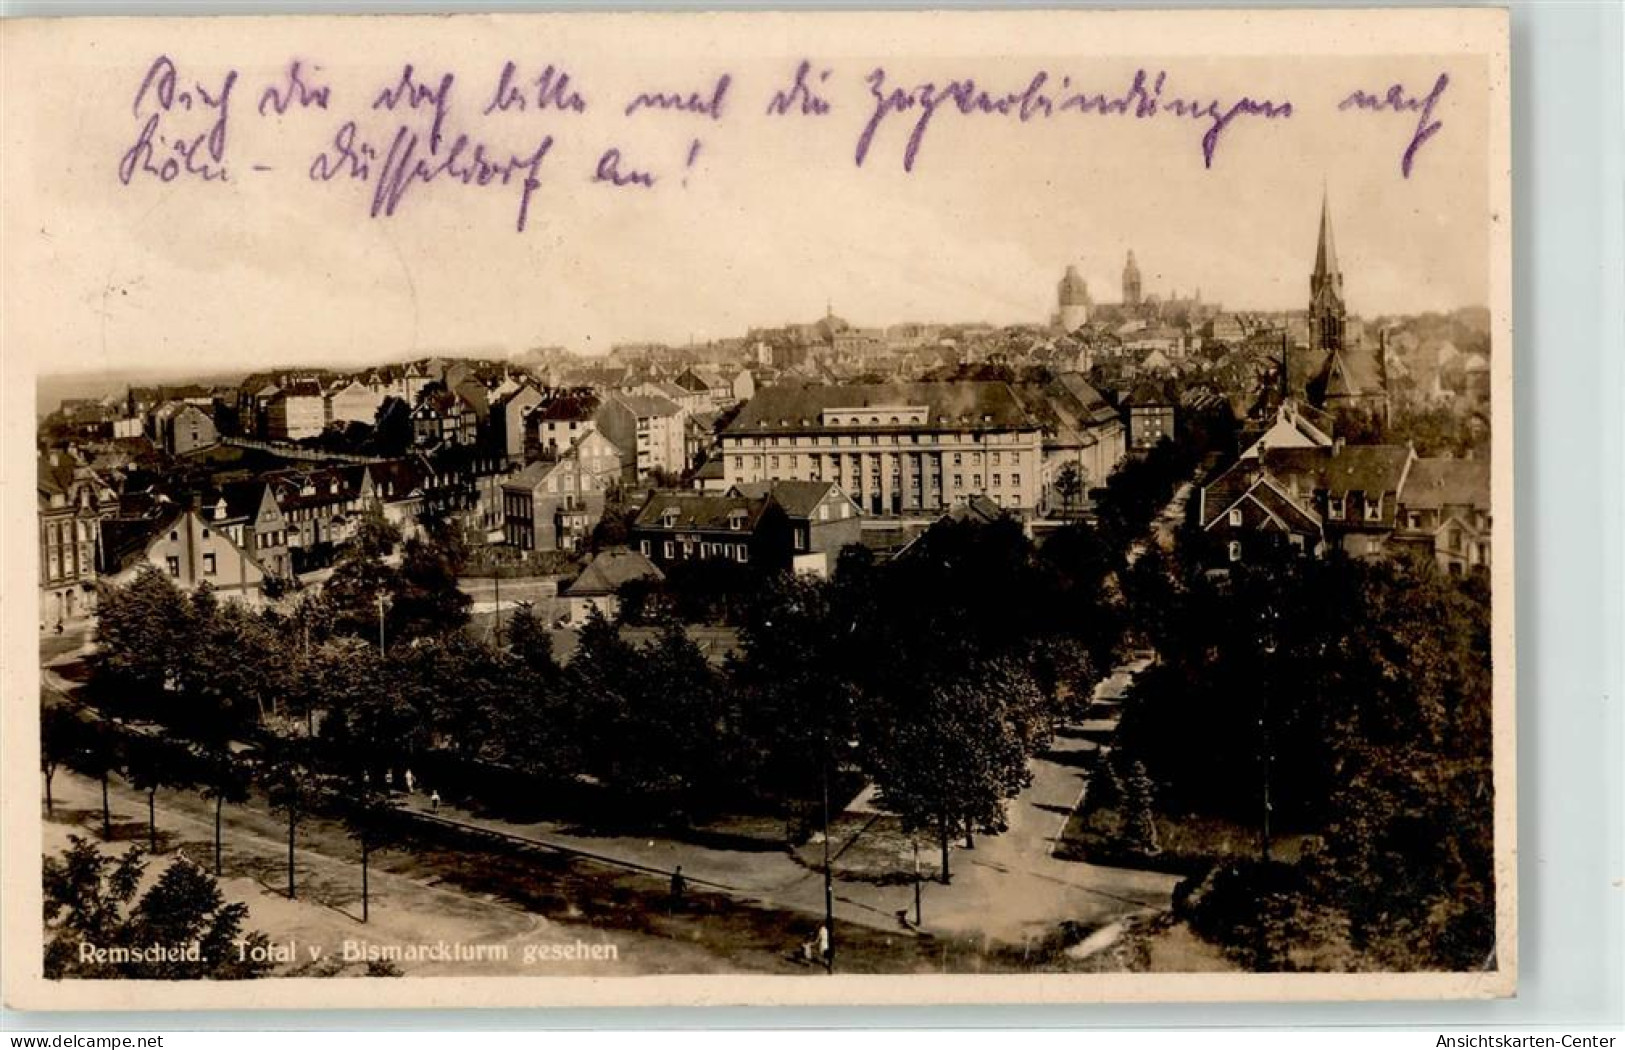 Sieh Dir doch bitte mal die Zugverbindungen nach
Köln - Düsseldorf an!
Remscheid. Total v. Bismarckturm gesehen
www.oldthing.de
Ansichtskarten-Center